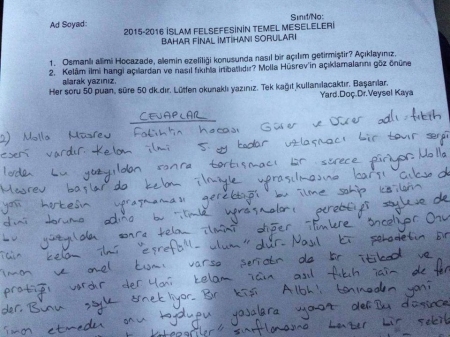 Ad Soyad:
Sınıf/No:
2015-2016 İSLAM FELSEFESİNİN TEMEL MESELELERİ
BAHAR FİNAL İMTİHANI SORULARI
1. Osmanlı alimi Hocazade, alemin ezeliliği konusunda nasıl bir açılım getirmiştir? Açıklayınız.
2. Kelâm ilmi hangi açılardan ve nasıl fıkıhla irtibatlıdır? Molla Hüsrev'in açıklamalarını göz önüne
alarak yazınız.
Her soru 50 puan, süre 50 dk.dır. Lütfen okunaklı yazınız. Tek kağıt kullanılacaktır. Başarılar.
Yard.Doç.Dr.Veysel Kaya
CEVAPLAR
2) Molla Hüsrev Fatih'in hocası adlı fıkıh
eseri vardır. Kelam ilmi 5. yy kadar uzlaşmacı bir tavır
bu yüzyıldan sonra tartışmacı bir sürece giriyor. Molla
Hüsrev başlarda kelam ilmiyle uğraşılmasına karşı
herkesin uğraşmaması gerektiği bu ilme sahip
adına bu ilimle uğraşmaları gerektiği söylese de
bu yüzyıldan sonra kelam ilmini diğer ilimlere önceliyor. Onun
için kelam ilmi "eşrefül-ulum"dur. Nasıl ki
iman ve amel kısmı varsa şeriatın da bir itikad ve
pratiği vardır der. Yani kelam için asıl fıkıh için de fer
der. Bunu şöyle örnekliyor. Bir kişi Allah'ı tanımadan yani
iman etmeden onun koyduğu yasalara der. Bu düşünce
sınıflamasına benzer bir şekilde